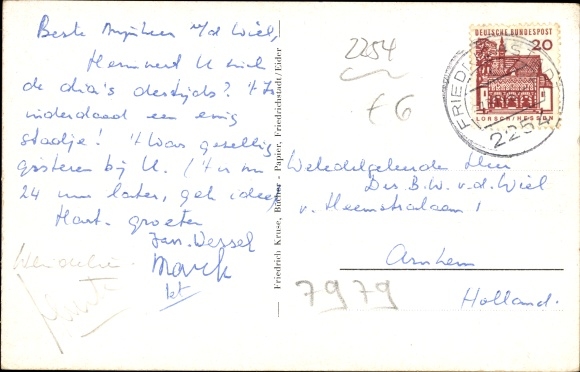 Beste Mijnheer v/d Wiel,
Herinnert U zich
de dia's destijds? 't Is
inderdaad een enig
stadje! 't Was gezellig
gisteren bij U. (4 u
24 uur later, gek idee)
Hart. groeten
Jan-Wessel
Marck
2254
£6
Friedrich Kruse, Bücher - Papier, Friedrichstadt/Eider
DEUTSCHE BUNDESPOST
20
LORSCH/HESSEN
FRIEDRICHSTADT
2254
Weledelgeboren Heer
Drs. B.W. v.d. Wiel
v. Heemstralaan 1
Arnhem
Holland.
7979